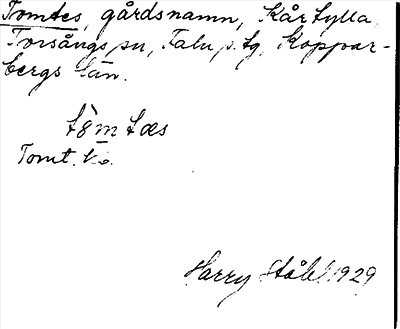 Tomtes, gårdsnamn, Kårtylla,
Torsångs sn, Falu s. tg, Koppar-
bergs län.
tòm tæs
Tomt.
Harry Ståhl 1929